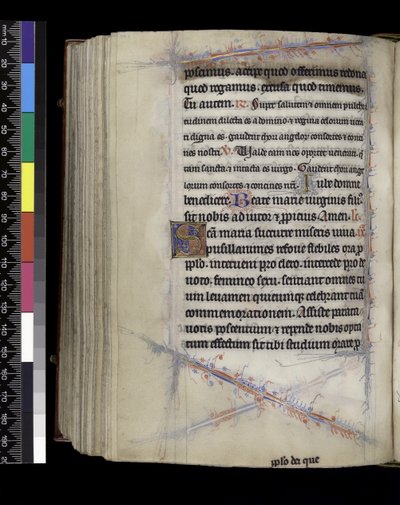 poscimus. accipe quod offerimus redona
quod rogamus. excusa quod timemus.
Tu autem. R. Super salutem ⁊ omnem pulchri
tudinem dilecta es a domino ⁊ regina celorum uoca
ri digna es. gaudent chori angelor consortes ⁊ conci
ues nostri. V. Valde eam nos oportet uenerari. q
tam sancta ⁊ intacta es uirgo. Gaudent chori ange
lorum consortes ⁊ conciues nri. Iube domne
benedicere. Beate marie uirginis fili9
sit nobis adiutor ⁊ ppicius. Amen. lc
Scā maria succurre miseris iuua
pusillanimes refoue flebiles ora p
pplo. interueni pro clero. intercede pro de
uoto. femineo sexu. sentiant omnes tu
um leuamen quicumq; celebrant tuā
commemorationem. Assiste parata
uotis poscentium ⁊ repende nobis opta
tum effectum sit tibi studium orare p
pplo dei que